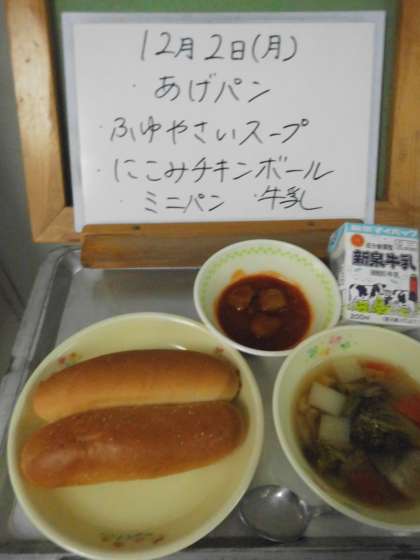 12月2日(月)
・あげパン
・ふゆやさいスープ
・にこみチキンボール
・ミニパン ・牛乳
新泉牛乳
200ml